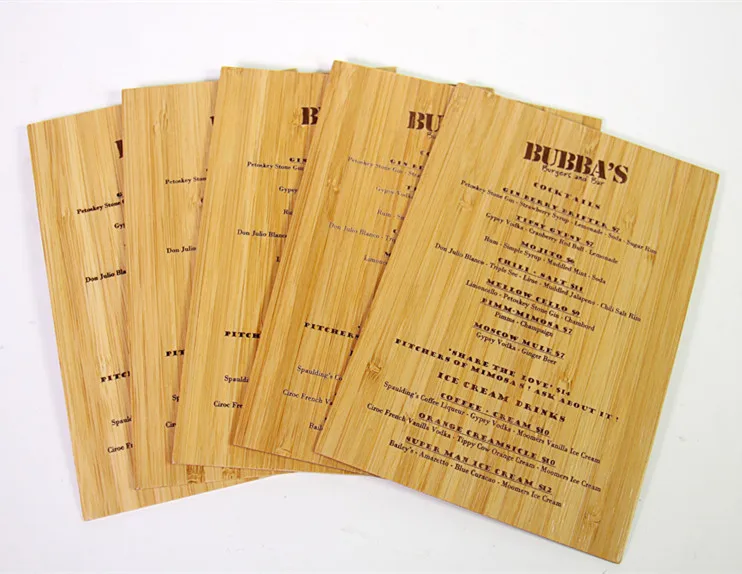 Petoskey Stone
Gypsy
Don Julio Blanco
PITC
Spaulding
Ciroc F
Petoskey Stone
Gypsy
Don Julio Blanc
PITCHE
Spaulding's
Ciroc Fren
B
GIN
Petoskey Stone Gin
Gypsy
Rum
Don Julio Blanco
PITCHERS
Spaulding's Co
Ciroc French V
BU
Petoskey Stone Gin
Gypsy
Rum - Sim
Don Julio Blanco - Tri
PITCHERS
Spaulding's Co
Ciroc French Vani
BUBBA'S
Burgers and Bar
COCKTAILS
GIN BERRY DRIFTER $7
Petoskey Stone Gin - Strawberry Syrup - Lemonade - Soda - Sugar Rim
TIPSY GYPSY $7
Gypsy Vodka - Cranberry Red Bull - Lemonade
MOJITO $6
Rum - Simple Syrup - Muddled Mint - Soda
CHILI ' SALT $11
Don Julio Blanco - Triple Sec - Lime - Muddled Jalapenos - Chili Salt Rim
MELLOW CELLO $9
Limoncello - Petoskey Stone Gin - Chambord
PIMM-MIMOSA $7
Pimms - Champaign
MOSCOW MULE $7
Gypsy Vodka - Ginger Beer
'SHARE THE LOVE' $14
PITCHERS OF MIMOSA'S! ASK ABOUT IT!
ICE CREAM DRINKS
COFFEE - CREAM $10
Spaulding's Coffee Liqueur - Gypsy Vodka - Moomers Vanilla Ice Cream
ORANGE CREAMSICLE $10
Ciroc French Vanilla Vodka - Tippy Cow Orange Cream - Moomers Ice Cream
SUPER MAN ICE CREAM $12
Bailey's - Amaretto - Blue Curacao - Moomers Ice Cream